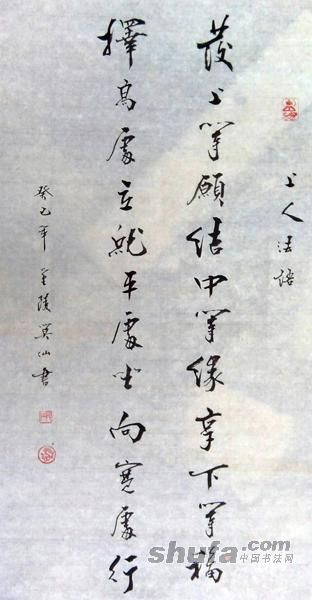 上人法語
發上等願結中等緣享下等福
擇高處立就平處坐向寬處行
癸巳年金陵冥仙書
shufa.com
中国书法网